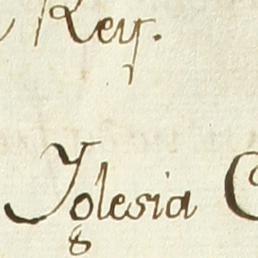 Rey.
Yglesia C